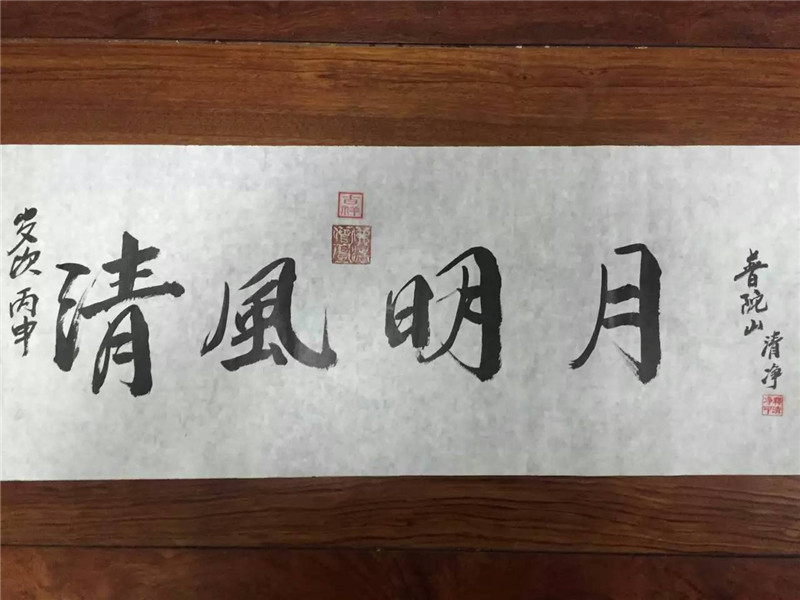 岁次丙申
清風明月
普陀山
清净